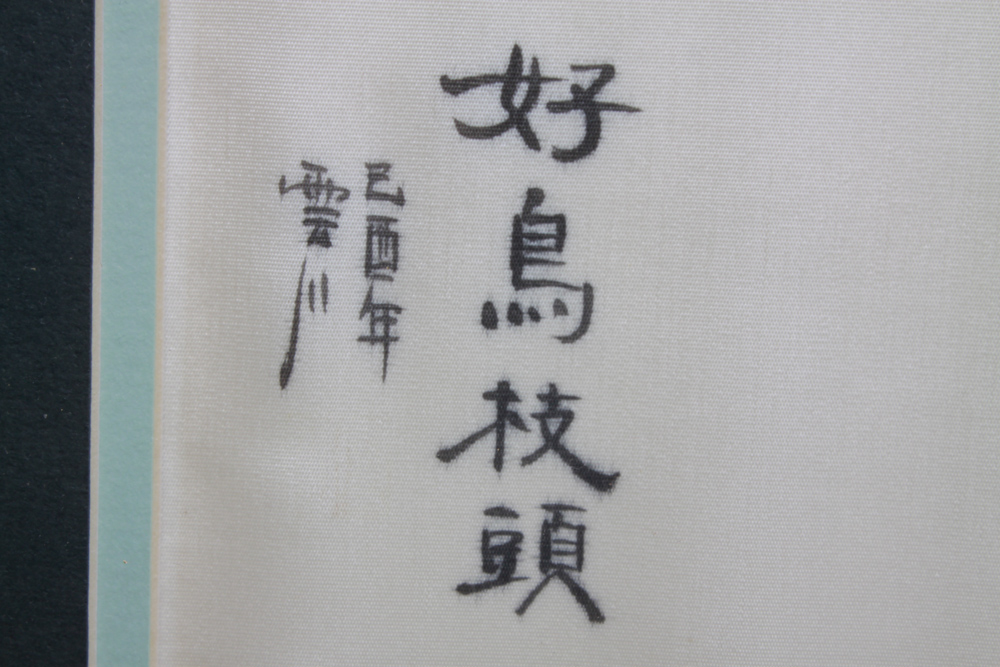 好鳥枝頭
己酉年
雲川